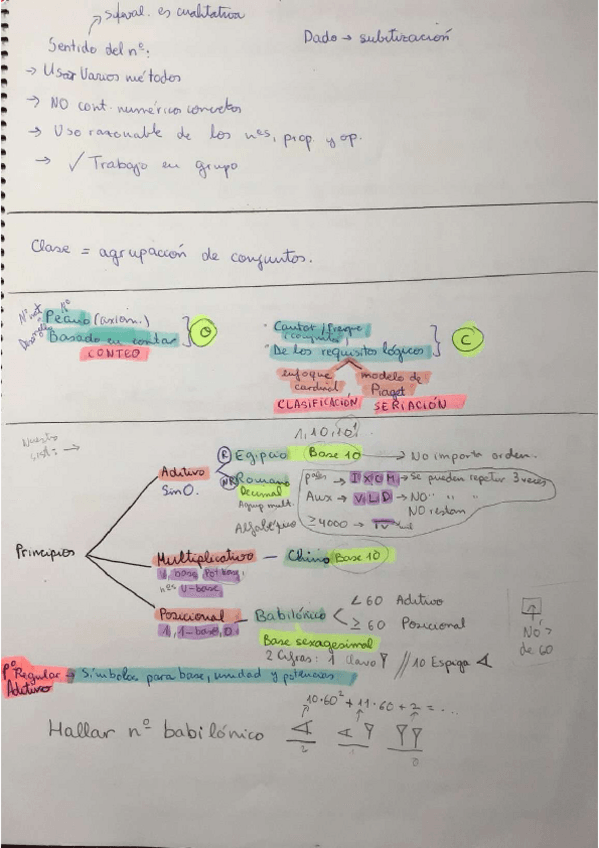 es cualitativa
Dado → subitización
Sentido del nº:
→ Usar Varios métodos
→ NO cont. numéricos concretos
→ Uso razonable de los nºs, prop. y op.
→ ✓ Trabajo en grupo
Clase = agrupación de conjuntos.
Peano (axiom.)
Basado en contar
CONTEO
O
Cantor / Frege
(conjuntos)
De los requisitos lógicos
C
enfoque cardinal
modelo de Piaget
CLASIFICACIÓN
SERIACIÓN
Nuestro sist.: →
Principios
Aditivo
Sin 0.
R Egipcio Base 10 → No importa orden.
NR Romano
Decimal
Agrup mult.
→ I X C M → Se pueden repetir 3 veces
Aux → V L D → NO " "
NO restan
Alfabético
≥4000 → IV
Multiplicativo – Chino Base 10
1, base, Pot base,
nºs U-base
Posicional – Babilónico
1, 1-base, 0
< 60 Aditivo
≥ 60 Posicional
Base sexagesimal
2 Cifras: 1 Clavo // 10 Espiga
NO >
de 60
Pº Regular Aditivo → Símbolos para base, unidad y potencias
10·60² + 11·60 + 2 = ...
Hallar nº babilónico
2 1 0